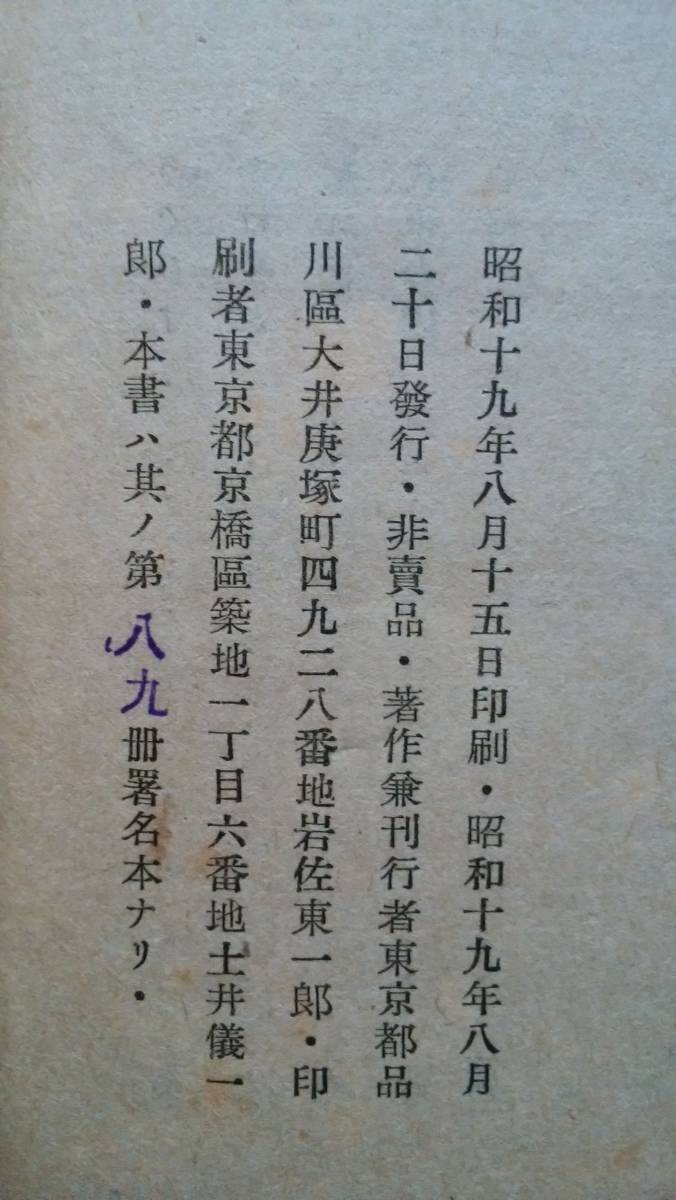 昭和十九年八月十五日印刷・昭和十九年八月
二十日發行・非賣品・著作兼刊行者東京都品
川區大井庚塚町四九二八番地岩佐東一郎・印
刷者東京都京橋區築地一丁目六番地土井儀一
郎・本書ハ其ノ第八九冊署名本ナリ・